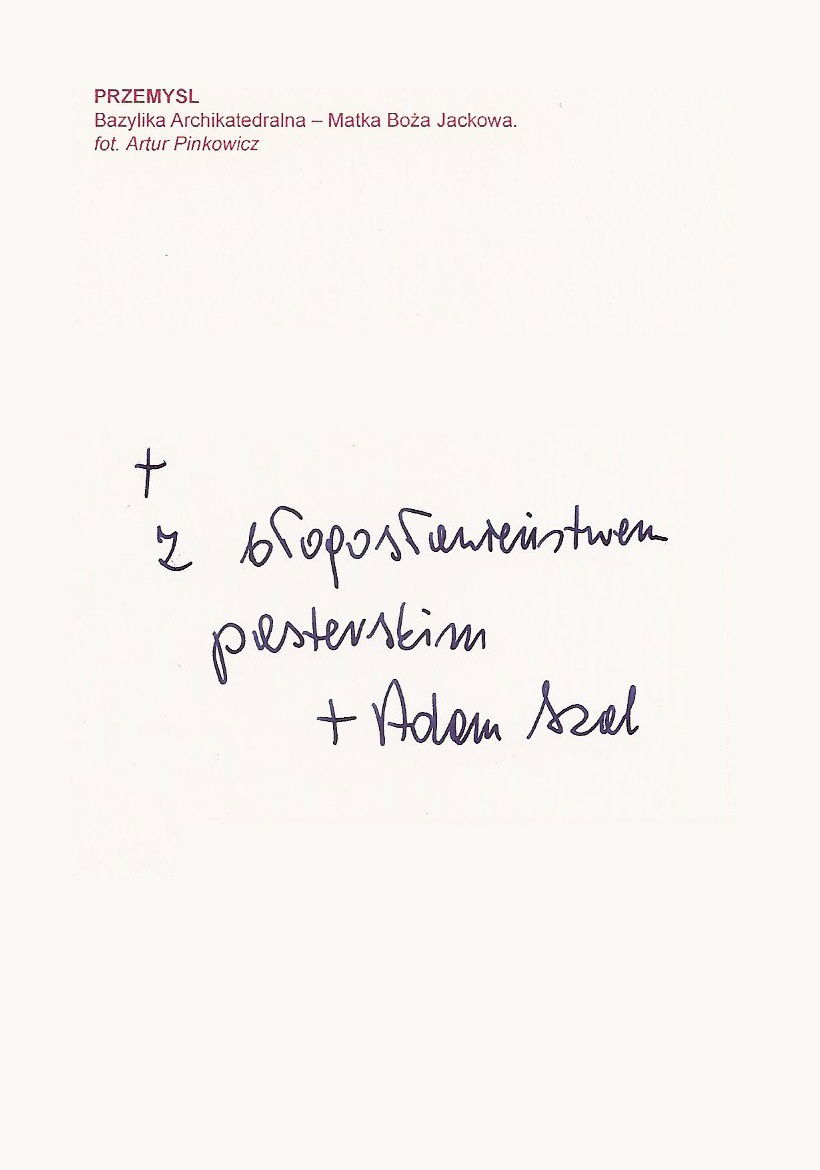 PRZEMYSL
Bazylika Archikatedralna – Matka Boża Jackowa.
fot. Artur Pinkowicz
†
Z błogosławieństwem
pasterskim
+ Adam Szal